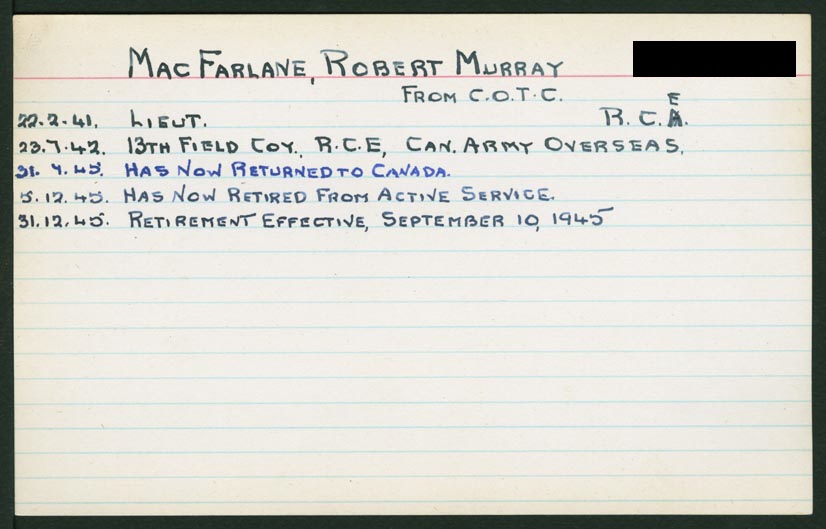 MacFarlane, Robert Murray
From C.O.T.C.
22.2.41. Lieut. R.C.E.
23.7.42. 13th Field Coy. R.C.E, Can. Army Overseas.
31. 7.45. Has Now Returned to Canada.
5.12.45. Has Now Retired From Active Service.
31.12.45. Retirement Effective, September 10, 1945